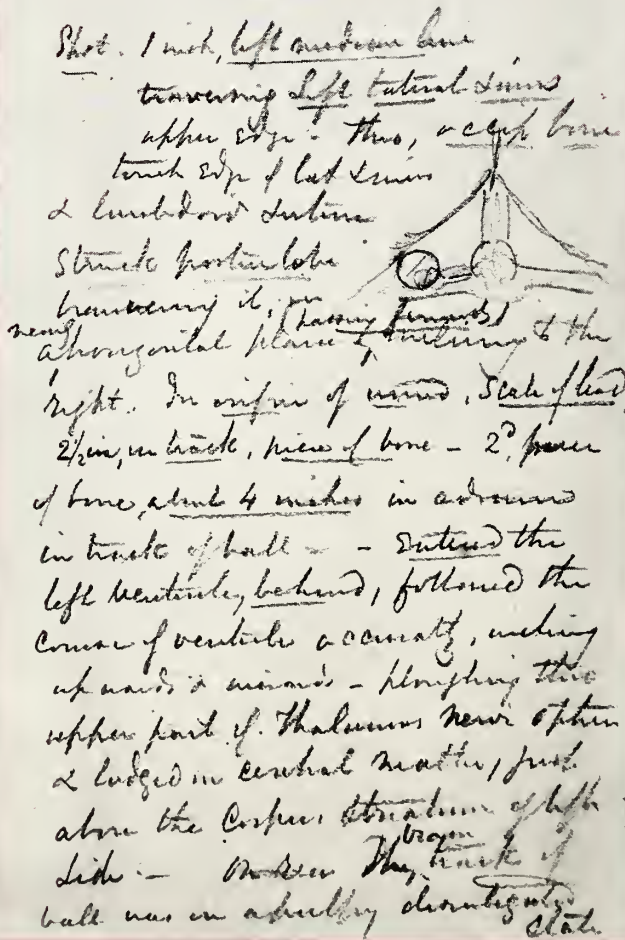 Shot. 1 inch, left median line
traversing Left lateral sinus
upper edge - thro, occip bone
touch edge of lat sinus
& lambdoid suture
Struck poster lobe
traversing it, in
(passing forwards)
nearly
a horizontal plane & inclining to the
right. In orifice of wound, Scale of lead,
2½ in, in track, piece of bone - 2d piece
of bone, about 4 inches in advance
in track of ball - - Entered the
left ventricle, behind, followed the
course of ventricle accurately, inclining
upwards & inwards - ploughing thro
upper part of Thalamus Nervi Optici
& lodged in cerebral matter, just
above the Corpus striatum of left
side. - The track of
brain
ball was in a pulpy disintegrated
state